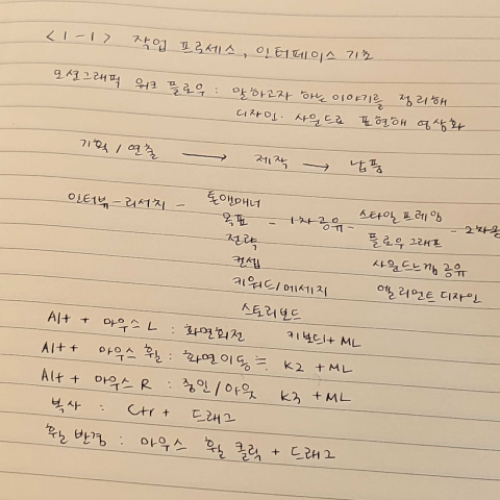 <1-1> 작업 프로세스, 인터페이스 기초
모션그래픽 워크 플로우 : 말하고자 하는 이야기를 정리해
디자인·사운드로 표현해 영상화
기획/연출 → 제작 → 납품
인터뷰-리서치 - 톤앤매너
목표 - 1차공유 - 스타일프레임
전략 플로우그래프 - 2차공
컨셉 사운드느낌공유
키워드/메세지 엘리먼트 디자인
스토리보드
Alt + 마우스 L : 화면회전 키보드1 + ML
Alt + 마우스 휠 : 화면이동 = K2 + ML
Alt + 마우스 R : 줌인/아웃 K3 + ML
복사 : Ctr + 드래그
휠 반경 : 마우스 휠 클릭 + 드래그